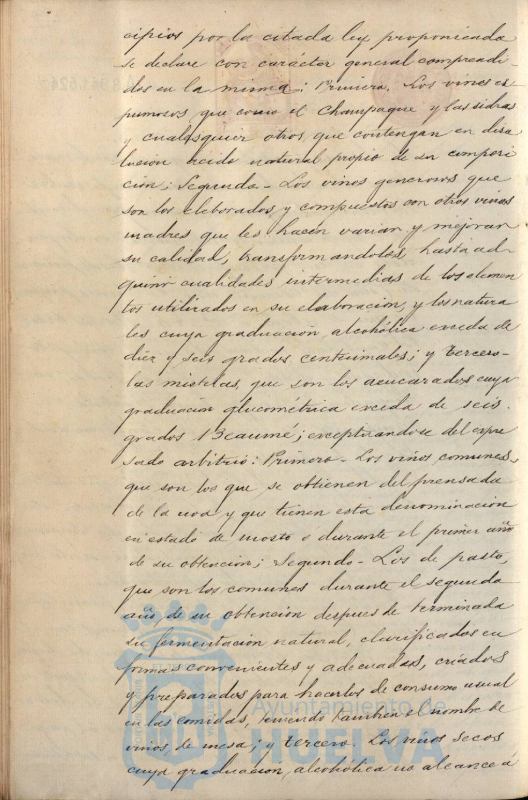 cipios por la citada ley proponiendo
se declare con carácter general comprendi
dos en la misma: Primero. Los vinos es
pumosos que como el Champagne y las sidras
y cualesquier otros que contengan en diso
lución acido natural propio de su composi
ción; Segundo - Los vinos generosos que
son los elaborados y compuestos con otros vinos
madres que les hacen variar y mejorar
su calidad, transformandoles hasta ad
quirir cualidades intermedias de los elemen
tos utilizados en su elaboración, y los natura
les cuya graduación alcohólica exceda de
diez y seis grados centesimales; y tercero-
las mistelas, que son los azucarados cuya
graduación glucométrica exceda de seis
grados Beaumé; exceptuandose del expre
sado arbitrio: Primero - Los viños comunes,
que son los que se obtienen del prensado
de la uva y que tienen esta denominación
en estado de mosto o durante el primer año
de su obtención; Segundo - Los de pasto,
que son los comunes durante el segundo
año de su obtención despues de terminada
su fermentación natural, clarificados en
formas convenientes y adecuadas, criados
y preparados para hacerlos de consumo usual
en las comidas, teniendo tambien el nombre de
vinos de mesa; y tercero. Los vinos secos
cuya graduación alcohólica no alcance á
Ayuntamiento de
HUELVA